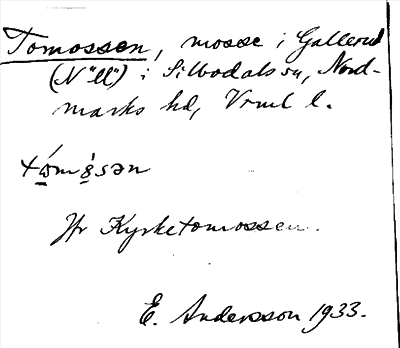 Tomossen, mosse i Gallerud
(N "ll") i Silbodals sn, Nord-
marks hd, Vrml l.
Jfr Kyrketomossen.
E. Andersson 1933.